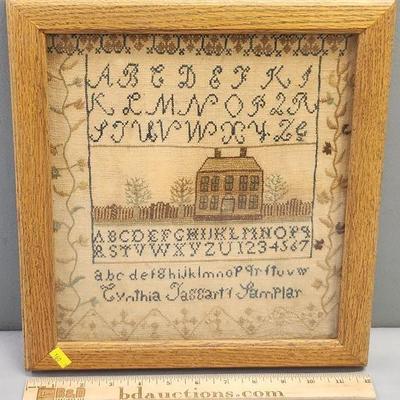 A B C D E F K I
K L M N O P Q R
S T U V W X Y Z &
ABCDEFGHIJKLMNOPQ
RSTVWXYZU1234567
abcdefghijklmnopqrstuvw
Cynthia Taggart Samplar
bdauctions.com